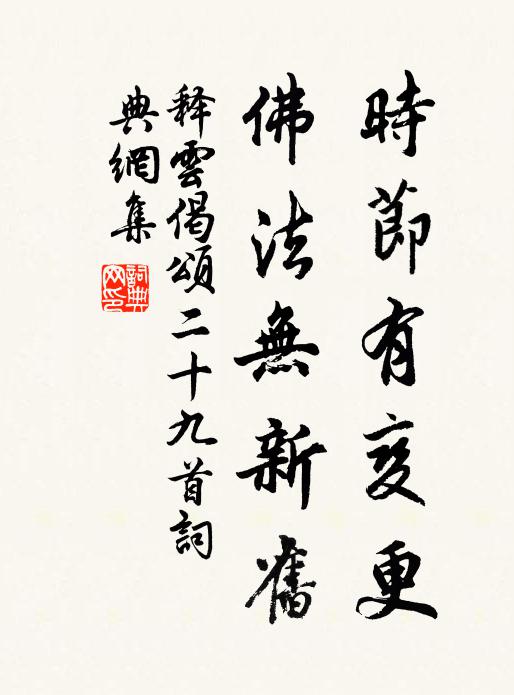 時節有变更
佛法無新舊
释雲偈頌二十九首詞
典網集
詞典
网印